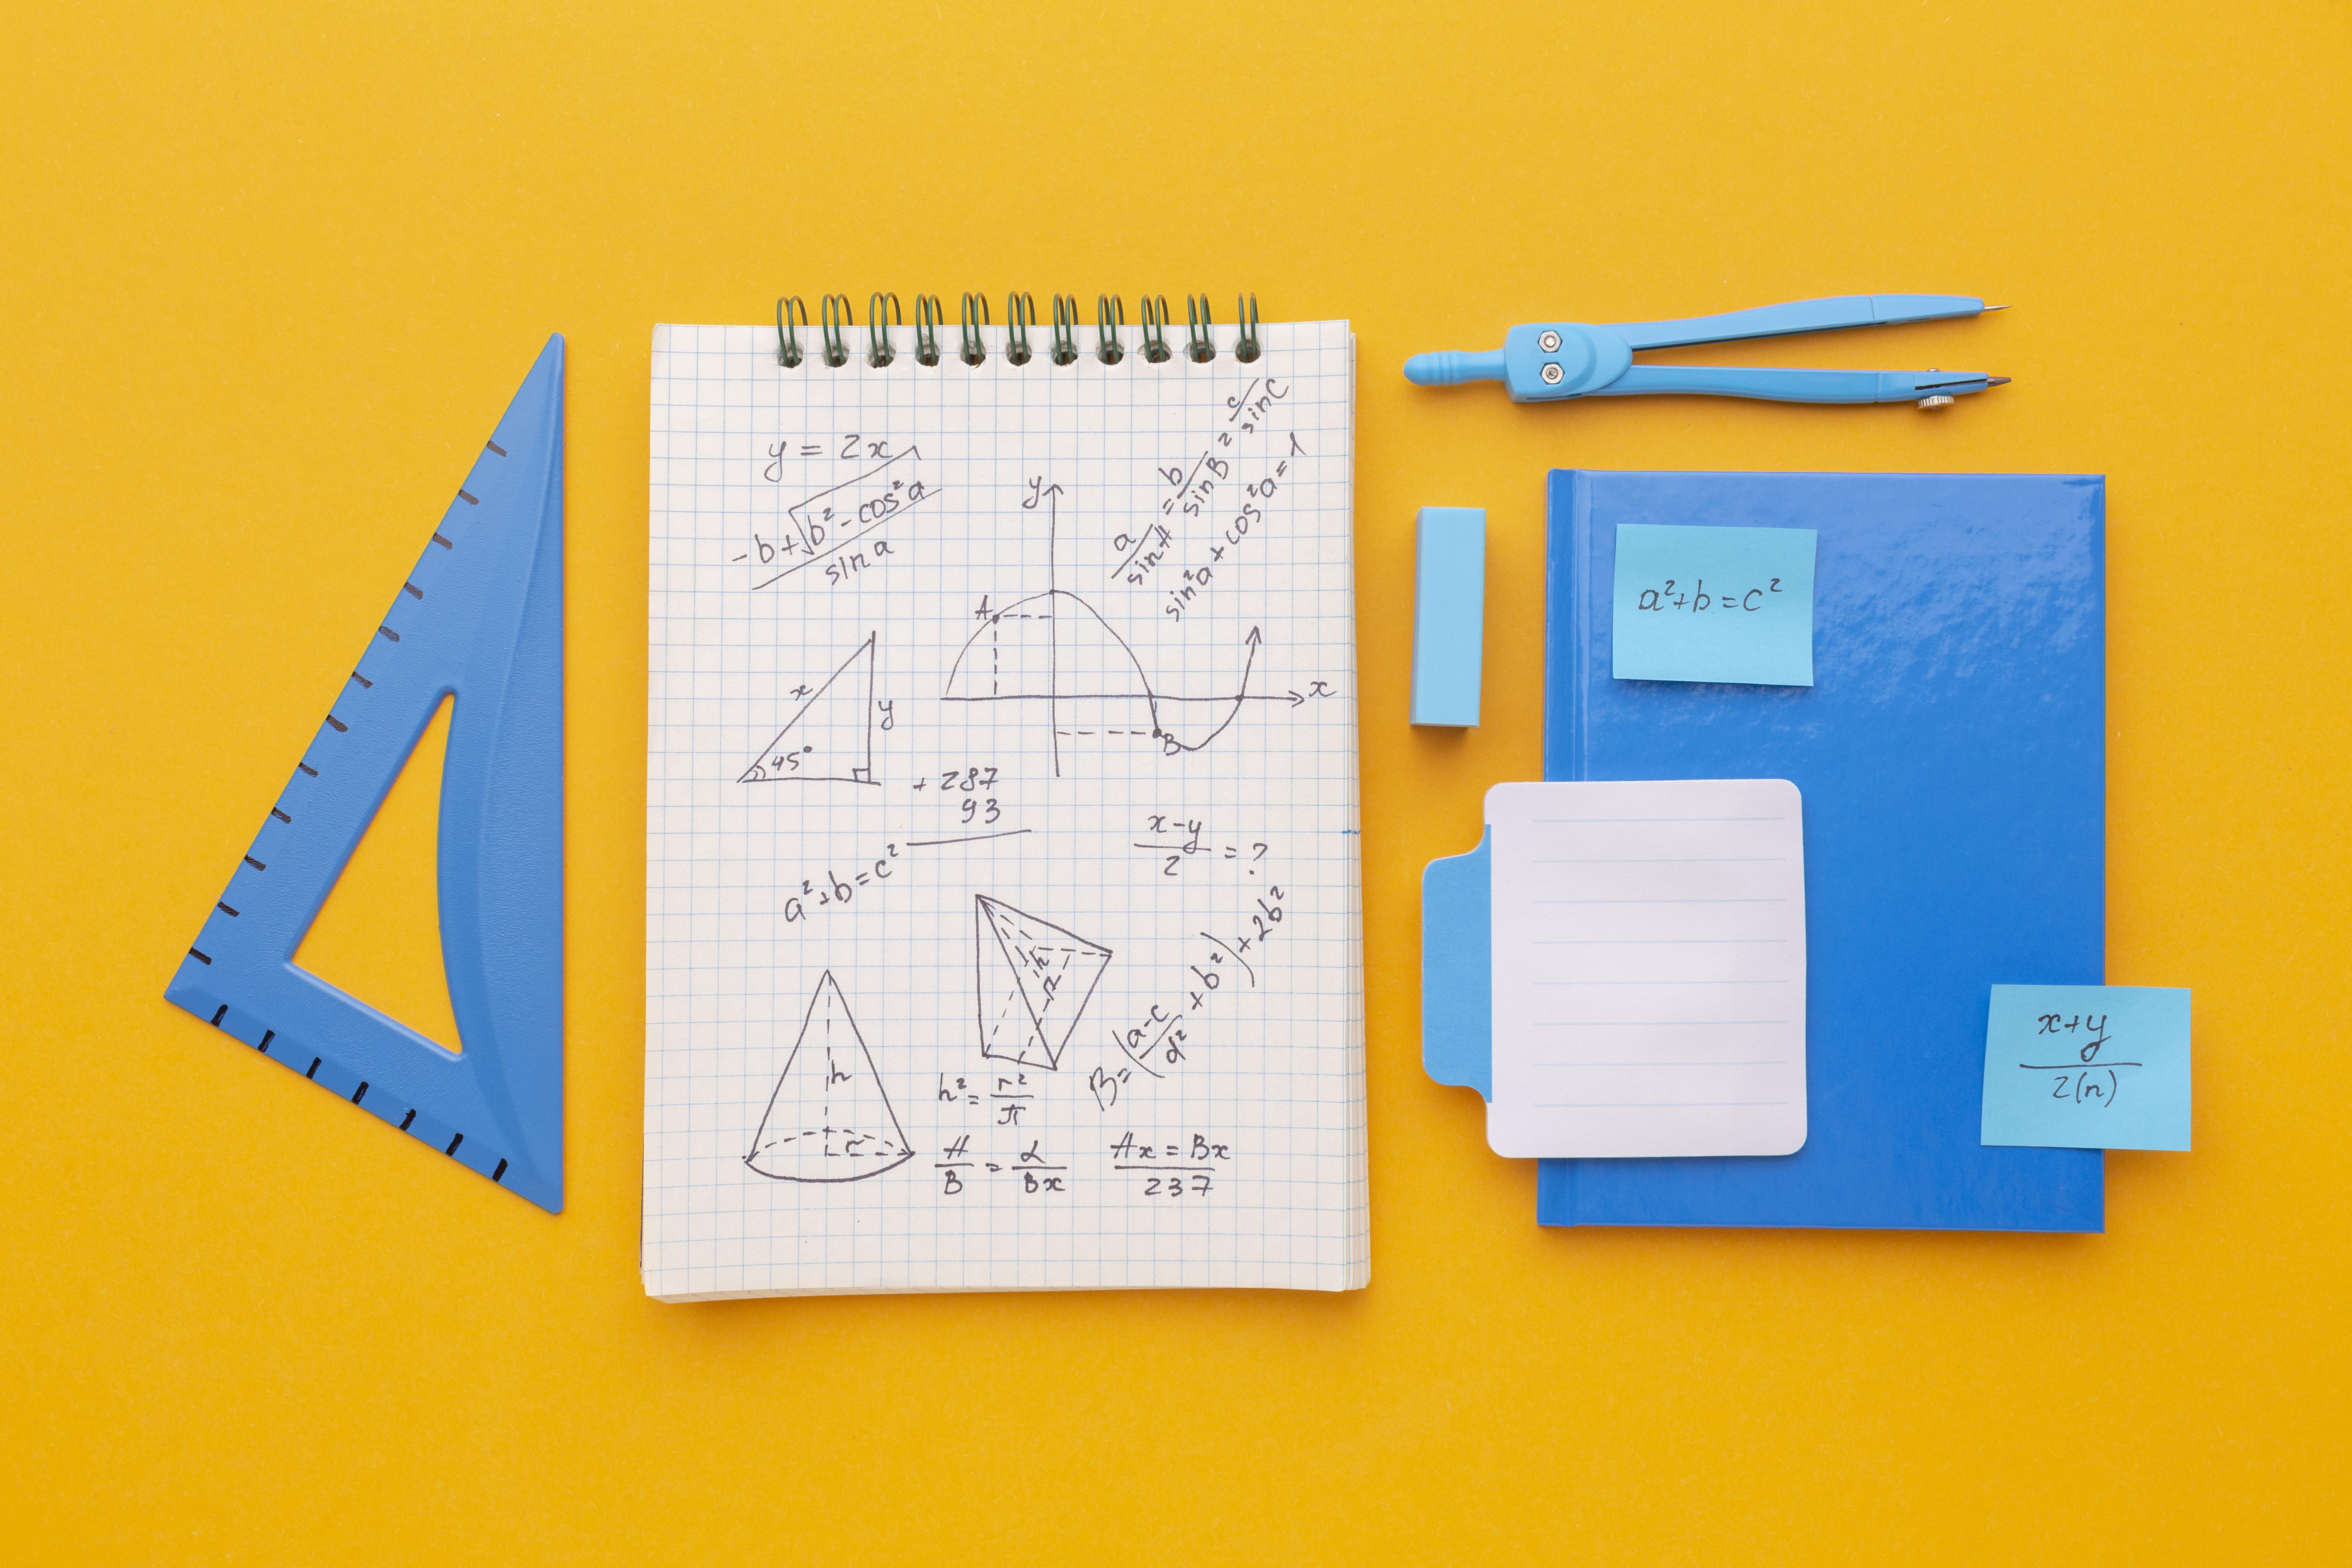 y = 2x
-b+√b²-cos²a / sin a
a/sinA = b/sinB = c/sinC
sin²a + cos²a = 1
y
A
x
B
x
y
45°
+ 287
93
a²+b=c²
x-y / 2 = ?
h
r
h² = r²/π
B = (a-c/d² + b²) + 2b²
h
r
A/B = L/Bx
Ax = Bx / 237
a²+b=c²
x+y / 2(n)